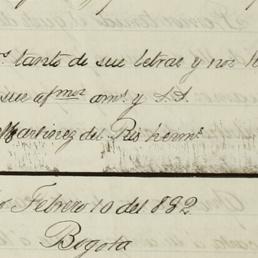 tanto de sus letras y nos
sus af.mos am.s y S.S.
Martinez del Rio herm.s
Febrero 10 del 882
Bogota